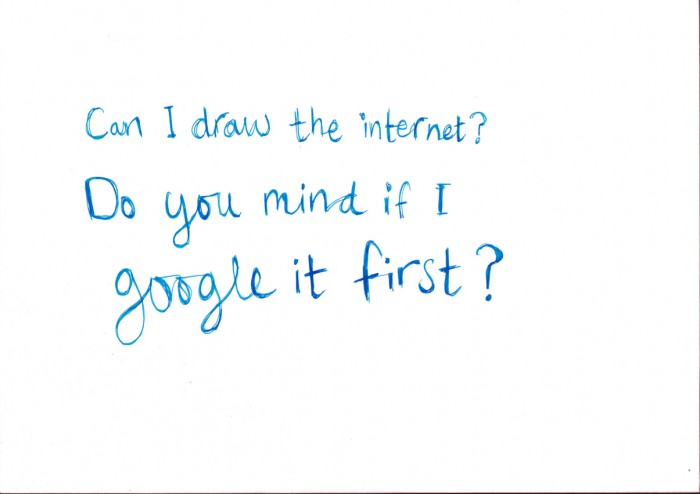 Can I draw the internet?
Do you mind if I
google it first?